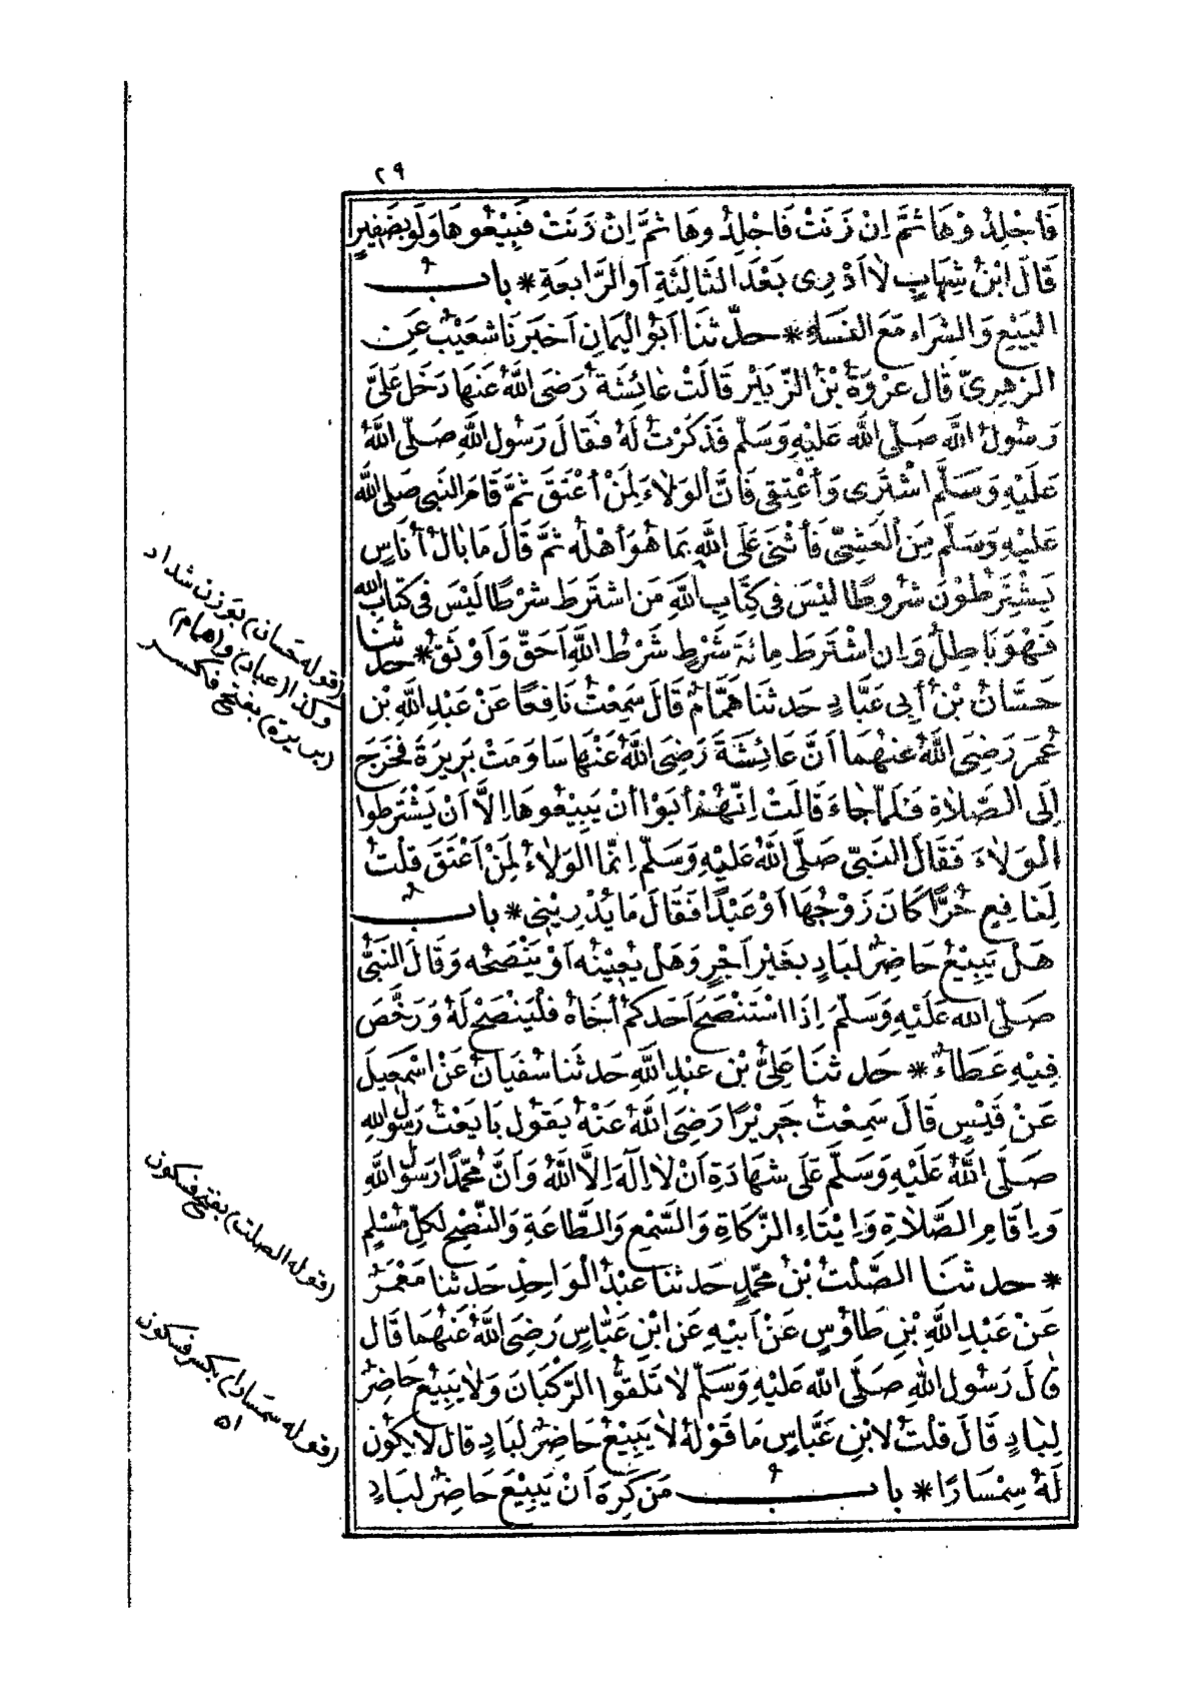 ٢٩
فَاجْلِدُوْهَا ثُمَّ اِنْ زَنَتْ فَاجْلِدُوهَا ثُمَّ اِنْ زَنَتْ فَبِيْعُوهَا وَلَوْ بِضَفِيرٍ
قَالَ ابْنُ شِهَابٍ لاَ اَدْرِى بَعْدَ الثَّالِثَةِ اَوِ الرَّابِعَةِ * بابُ
البَيْعِ وَالشِّرَاءِ مَعَ النِّسَاءِ * حدّثنَا اَبُو الْيَمَانِ اَخبَرَنَا شعَيْبٌ عَنِ
الزهرِىّ قَالَ عُرْوَةُ بْنُ الزّبَيْرِ قَالَتْ عَائِشَةُ رَضِىَ اللّهُ عَنهَا دَخَلَ عَلَىَّ
رَسُولُ اللَّهِ صَلّى اللَّه عَلَيْهِ وَسَلّم فَذَكَرْتُ لَهُ فقَالَ رَسُولُ اللّهِ صَلّى اللَّهُ
عَلَيْهِ وَسَلَّم اشْتَرِى وَأَعْتِقِى فَاِنَّ الوَلاَءَ لِمَنْ أعْتَقَ ثمَّ قَامَ النَبِى صَلى اللّه
عَلَيْهِ وَسَلَّم مِنَ العَشِىِّ فَأثْنَى عَلَى اللَّهِ بِمَا هُوَ أهْلُه ثمَّ قَالَ مَا بَالُ أنَاسٍ
يَشْتَرِطُوْنَ شُرُوطًا لَيْسَ فى كِتَابِ اللَّهِ مَن اشتَرطَ شرْطًا لَيْسَ فى كتَابِ اللّه
فَهُوَ بَاطِلٌ وَاِنِ اشْتَرَطَ مِائَةَ شَرْطٍ شَرْطُ اللّهِ اَحَقّ وَاَوْثَقُ * حدّثنَا
حَسَّانُ بْنُ أَبِى عَبَّادٍ حَدثَنَا هَمَّامٌ قَالَ سَمِعْتُ نَافِعًا عَنْ عَبْدِ اللَّهِ بْنِ
عُمَرَ رَضِىَ اللَّهُ عنهُمَا اَنَّ عَائِشَةَ رَضِىَ اللّهُ عَنْهَا سَاوَمَتْ بَرِيرَةَ فخَرَجَ
اِلَى الصَّلاَةِ فَلَمّا جَاءَ قَالَتْ اِنّهُمْ أبَوْا أنْ يَبِيْعُوهَا اِلاَّ اَنْ يَشْتَرِطوا
الْوَلاَءَ فَقَالَ النَبىّ صَلَّى اللَّهُ عَلَيْهِ وَسَلّم اِنّمَا الوَلاَءُ لِمَنْ اَعْتَقَ قلْتُ
لِنَافِعٍ حُرًّا كَانَ زَوْجُهَا اَوْ عَبْدًا فقَالَ مَا يُدْرِيْنِى * بابُ
هَلْ يَبِيْعُ حَاضِرٌ لبَادٍ بغَيْرِ اَجْرٍ وَهَلْ يُعِيْنُه اَوْ يَنْصَحُه وَقَالَ النَبىّ
صَلّى اللّه عَلَيْهِ وَسَلّمَ اِذَا اسْتَنْصَحَ اَحَدُكمْ أَخَاهُ فلْيَنْصَحْ لَهُ وَرَخَّصَ
فِيْهِ عَطَاءٌ * حَدثنَا عَلِىُّ بْن عَبْدِ اللَّهِ حَدثَنا سُفيَانُ عَنْ اسْمعِيلَ
عَنْ قَيْسٍ قَالَ سَمِعْتُ جَرِيْرًا رَضِىَ اللَّهُ عَنْهُ يَقولُ بَايَعْتُ رَسولَ اللهِ
صَلَّى اللَّهُ عَلَيْهِ وَسَلَّم عَلَى شهَادَةِ اَنْ لاَ اِلَهَ اِلاَّ اللَّهُ وَاَنَّ محمّدًا رَسولُ اللَّهِ
وَاِقَامِ الصَّلاَةِ وَاِيْتَاءِ الزّكَاةِ وَالسَّمْعِ وَالطَّاعَةِ وَالنُّصْحِ لكلّ مُسْلِمٍ
* حدثنَا الصَّلْتُ بْنُ محمَّدٍ حَدثنَا عَبْدُ الْوَاحِدِ حَدثنَا مَعْمَرٌ
عَنْ عَبْدِ اللَّهِ بْنِ طَاوُسٍ عَنْ اَبِيْهِ عَنِ ابْنِ عَبَّاسٍ رَضِىَ اللّهُ عَنْهُمَا قَالَ
قَالَ رَسُولُ اللّهِ صَلّى اللَّه عَلَيْهِ وَسَلّم لاَ تَلَقَّوُا الرّكْبَانَ وَلاَ يَبِيْعُ حَاضِرٌ
لِبَادٍ قَالَ قلْتُ لابْنِ عَبَّاسٍ مَا قَوْلُهُ لاَ يَبِيْعُ حَاضِرٌ لبَادٍ قال لاَ يَكُون
لَهُ سِمْسَارًا * بابُ مَنْ كَرِهَ اَنْ يَبِيْعَ حَاضِرٌ لبَادٍ
(قوله حَسان) بوَزن شداد
وكذا (عباد) و(همام)
(بريرة) بفتح فكسر
(قوله الصلت) بفتح فسكون
(قوله سمسارا) بكسر فسكون
اه